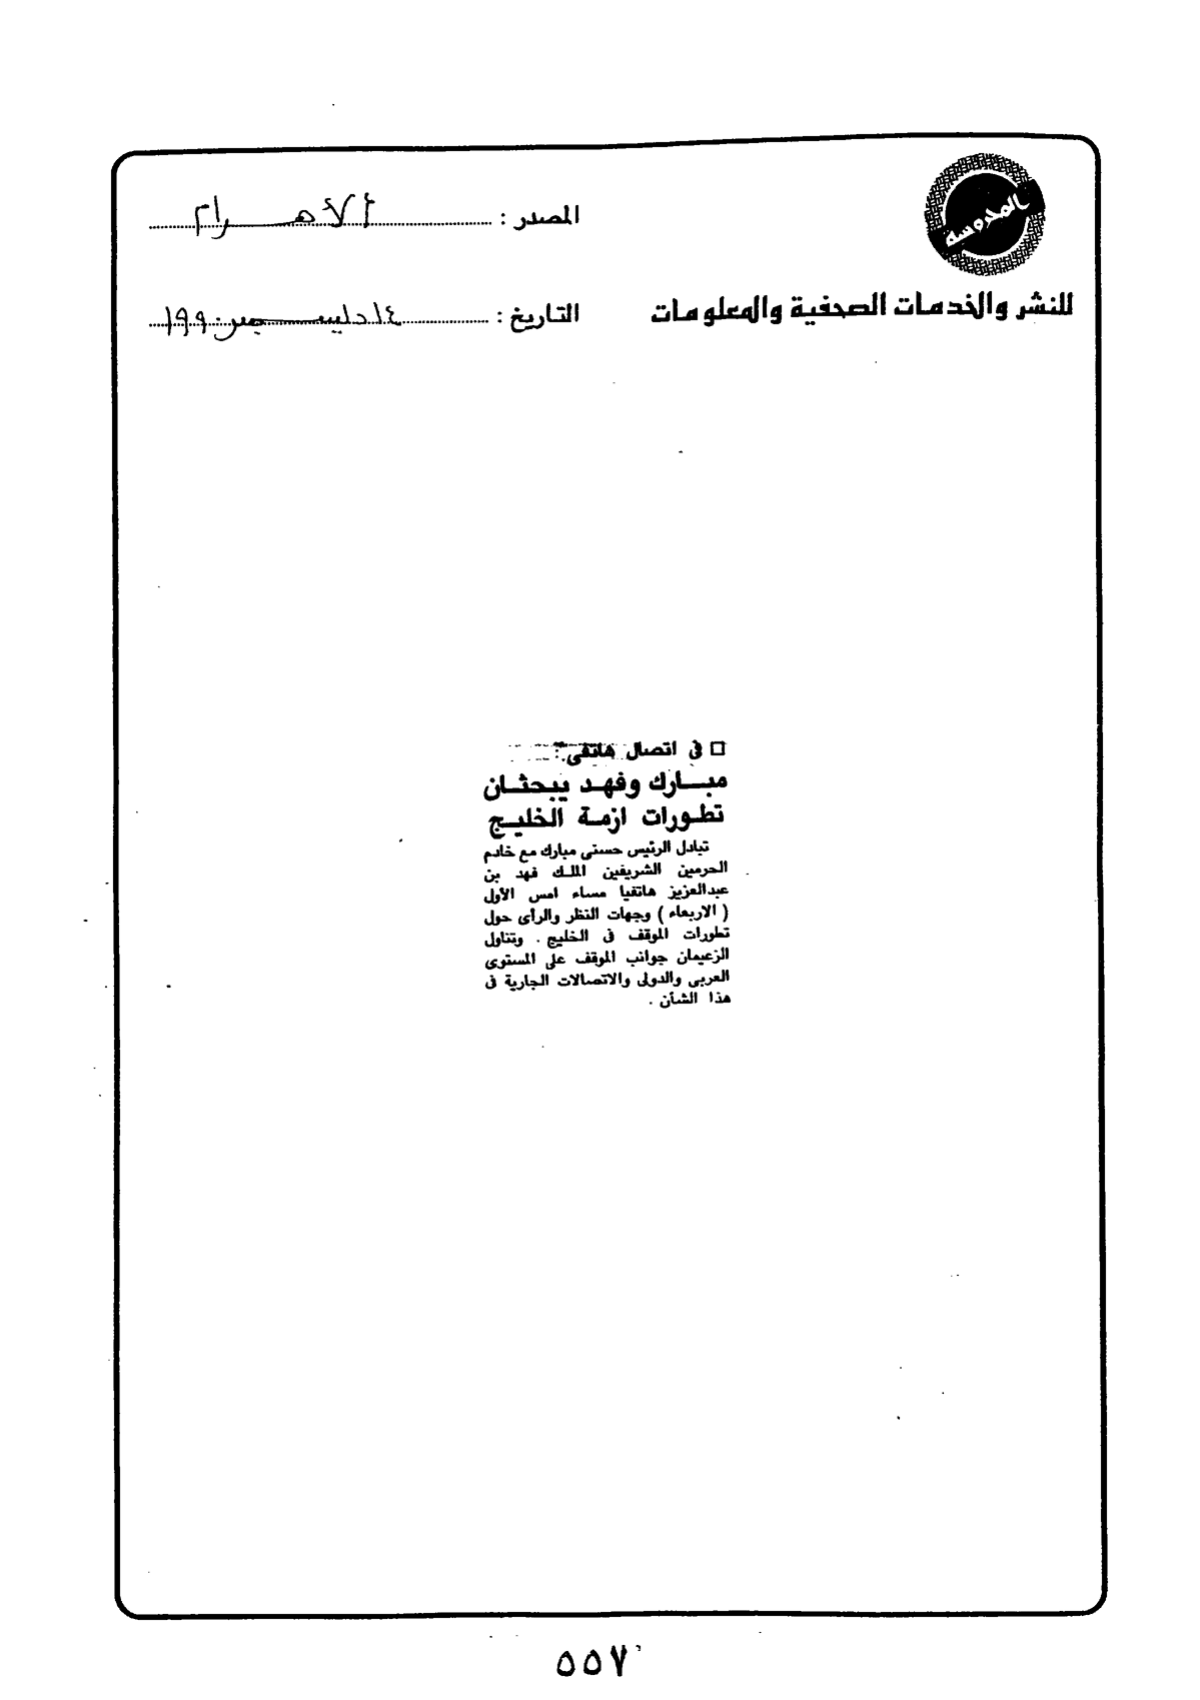 المحروسة
للنشر والخدمات الصحفية والمعلومات
المصدر : الأهرام
التاريخ : ١٤ ديسمبر ١٩٩٠
□ فى اتصال هاتفى :
مبــارك وفهـد يبحثـان
تطـورات ازمـة الخليـج
تبادل الرئيس حسنى مبارك مع خادم
الحرمين الشريفين الملك فهد بن
عبدالعزيز هاتفيا مساء امس الأول
( الاربعاء ) وجهات النظر والرأى حول
تطورات الموقف فى الخليج . وتناول
الزعيمان جوانب الموقف على المستوى
العربى والدولى والاتصالات الجارية فى
هذا الشأن .
٥٥٧